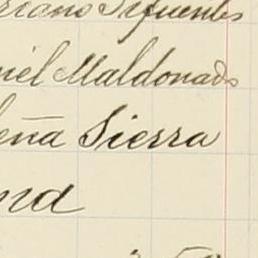 riano Sifuentes
niel Maldonado
eña Sierra
na